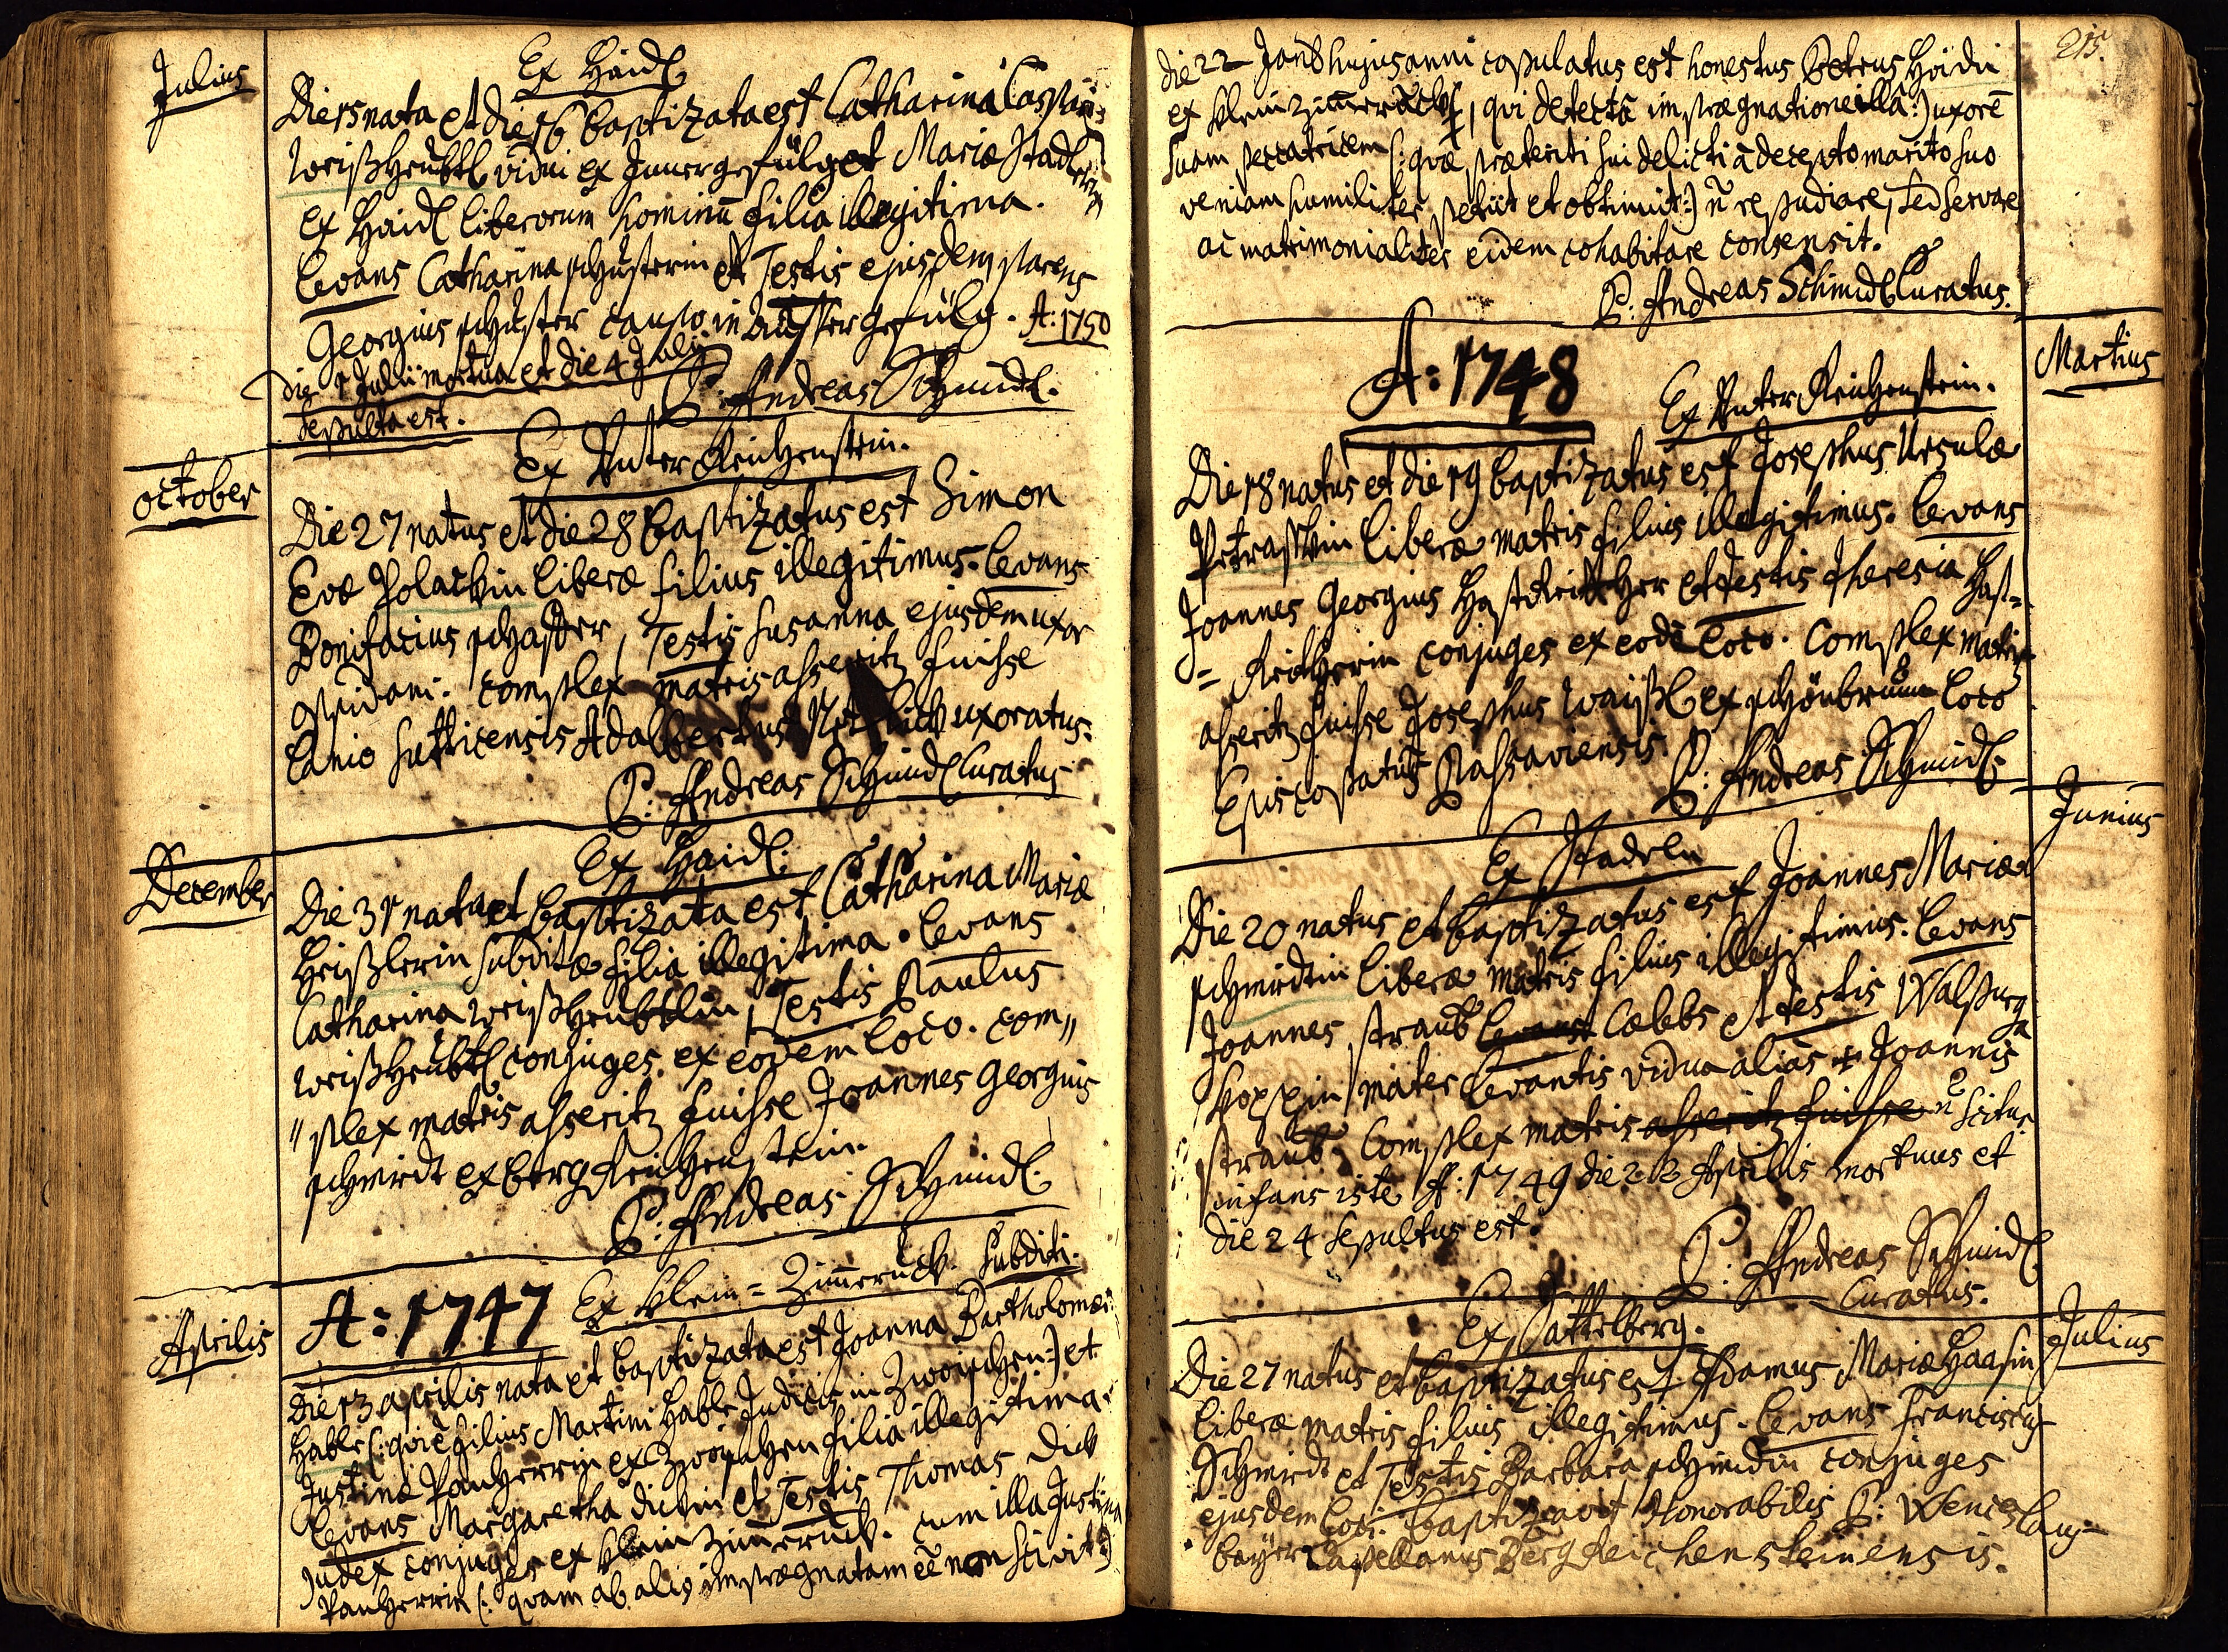 Julius
Ex Haidl
Die 15 nata et die 16 baptizata est Catharina Caspari
Weishäubtl vidui ex Innergefülg et Mariæ Stadlerin
ex Haidl liberorum hominū filia illegitima.
Levans Catharina schusterin et Testis ejusdem parens
Georgius schuster caupo in Ausser gefülg. A: 1750
die 1 Julii mortua et die 4 Julii
sepulta est.
P: Andreas Schmidl.
October
Ex Unter Reichenstein.
Die 27 natus et die 28 baptizatus est Simon
Evæ Polackin liberæ filius illegitimus. Levans
Bonifacius , Testis Susanna ejusdem uxor
oppidani. complex matris asseritr fuisse
Lanio Sutticensis Adalbertus uxoratus.
P: Andreas Schmidl Curatus
December
Ex Haidl.
Die 31 nata et baptizata est Catharina Mariæ
Heisslerin subditæ filia illegitima. Levans
Catharina weisshäubtlin, Testis Paulus
weisshäubtl conjuges. ex eodem loco. com„
„plex matris asseritr fuisse Joannes Georgius
schmidt ex bergReichenstein.
P: Andreas Schmidl.
Aprilis
A: 1747 Ex Klein=Zimmeruck. subditi.
Die 13 aprilis nata et baptizata est Joanna Bartholomæi
Hable (: qui ē filius Martini Hable Judicis in Zwoischen:) et
Justinæ Panherrin ex Zwoischen filia illegitima.
Levans Margaretha dickin et Testis Thomas Dick
Judex conjuges ex klein Zimmeruck. cum illa Justina
Panherrin (: quam ab alio imprægnatam eē non scivit:)
215.
die 22 Jan8 hujus anni copulatus est honestus Petrus Haidn
ex klein Zimmeruck, qui detectâ imprægnatione illâ:) uxorē
suam peccatricem (: quæ præteriti sui delicti â decepto marito suo
veniam humiliter petiit et obtinuit:) n̄ repudiare, sed servare,
ac matrimonialiter eidem cohabitare consensit.
P: Andreas Schmidl Curatus.
A: 1748
Martius
Ex Unter Reichenstein.
Die 18 natus et die 19 baptizatus est Josephus Ursulæ
Petraschkin liberæ matris filius illegitimus. Levans
Joannes Georgius HastReitther et Testis Theresia Hast=
=Reitherin conjuges ex eodē loco. Complex matris
asseritr fuisse Josephus Waissl ex schönbrunn loco
Episcopatus Passaviensis.
P: Andreas Schmidl.
Junius
Ex Stadeln
Die 20 natus et baptizatus est Joannes Mariæ
schmidtin liberæ matris filius illegitimus. Levans
Joannes straub Levans Cœlebs et testis Walpurga
mater Levantis vidua alias + Joannis
straub. Complex matris asseritr fuisse n̄ scitur
infans iste A: 1749 die 22 Aprilis mortuus et
die 24 sepultus est.
P: Andreas Schmidl
Curatus.
Julius
Ex Sattelberg.
Die 27 natus et baptizatus est Adamus Mariæ Haasin
liberæ matris filius illegitimus. Levans Franciscus
Schmidt et Testis Barbara schmidin conjuges
ejusdem loci. baptizavit Honorabilis P: Wenceslaus
bayer Capellanus BergReichensteinensis.